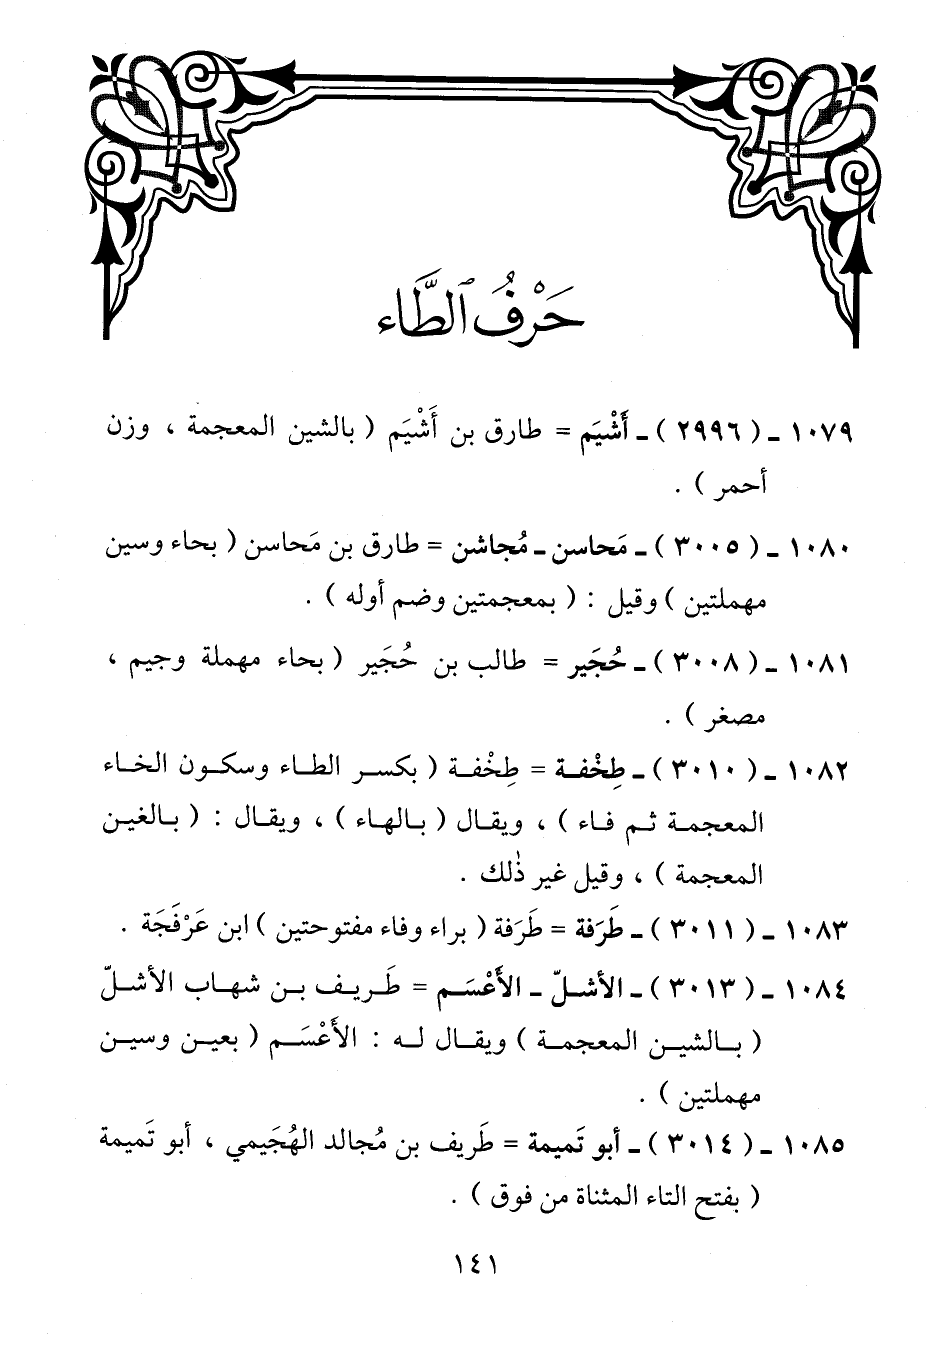 حَرْفُ ٱلطَّاء
١٠٧٩ ـ ( ٢٩٩٦ ) ـ أَشْيَم = طارق بن أَشْيَم ( بالشين المعجمة ، وزن
أحمر ) .
١٠٨٠ ـ ( ٣٠٠٥ ) ـ مَحاسن ـ مُجاشن = طارق بن مَحاسن ( بحاء وسين
مهملتين ) وقيل : ( بمعجمتين وضم أوله ) .
١٠٨١ ـ ( ٣٠٠٨ ) ـ حُجَير = طالب بن حُجَير ( بحاء مهملة وجيم ،
مصغر ) .
١٠٨٢ ـ ( ٣٠١٠ ) ـ طِخْفـة = طِخْفـة ( بكسـر الطـاء وسكـون الخـاء
المعجمـة ثـم فـاء ) ، ويقـال ( بـالهـاء ) ، ويقـال : ( بـالغيـن
المعجمة ) ، وقيل غير ذٰلك .
١٠٨٣ ـ ( ٣٠١١ ) ـ طَرَفة = طَرَفة ( براء وفاء مفتوحتين ) ابن عَرْفَجَة .
١٠٨٤ ـ ( ٣٠١٣ ) ـ الأشـلّ ـ الأَعْسَـم = طَـريـف بـن شهـاب الأشـلّ
( بـالشيـن المعجمـة ) ويقـال لـه : الأَعْسَـم ( بعيـن وسيـن
مهملتين ) .
١٠٨٥ ـ ( ٣٠١٤ ) ـ أبو تَميمة = طَريف بن مُجالد الهُجَيمي ، أبو تَميمة
( بفتح التاء المثناة من فوق ) .
١٤١